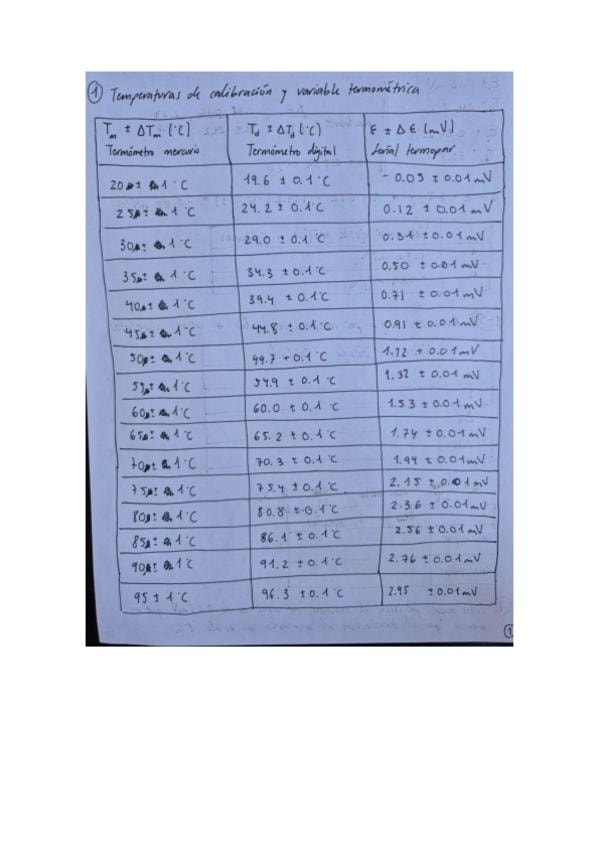 ① Temperaturas de calibración y variable termométrica
Tm ± ΔTm (°C) Td ± ΔTd (°C) ε ± Δε (mV)
Termómetro mercurio Termómetro digital Señal termopar
20 ± 1 °C 19.6 ± 0.1 °C - 0.05 ± 0.01 mV
25 ± 1 °C 24.2 ± 0.1 °C 0.12 ± 0.01 mV
30 ± 1 °C 29.0 ± 0.1 °C 0.31 ± 0.01 mV
35 ± 1 °C 34.3 ± 0.1 °C 0.50 ± 0.01 mV
40 ± 1 °C 39.4 ± 0.1 °C 0.71 ± 0.01 mV
45 ± 1 °C 44.8 ± 0.1 °C 0.91 ± 0.01 mV
50 ± 1 °C 49.7 ± 0.1 °C 1.12 ± 0.01 mV
55 ± 1 °C 54.9 ± 0.1 °C 1.32 ± 0.01 mV
60 ± 1 °C 60.0 ± 0.1 °C 1.53 ± 0.01 mV
65 ± 1 °C 65.2 ± 0.1 °C 1.74 ± 0.01 mV
70 ± 1 °C 70.3 ± 0.1 °C 1.94 ± 0.01 mV
75 ± 1 °C 75.4 ± 0.1 °C 2.15 ± 0.01 mV
80 ± 1 °C 80.8 ± 0.1 °C 2.36 ± 0.01 mV
85 ± 1 °C 86.1 ± 0.1 °C 2.56 ± 0.01 mV
90 ± 1 °C 91.2 ± 0.1 °C 2.76 ± 0.01 mV
95 ± 1 °C 96.3 ± 0.1 °C 2.95 ± 0.01 mV
①